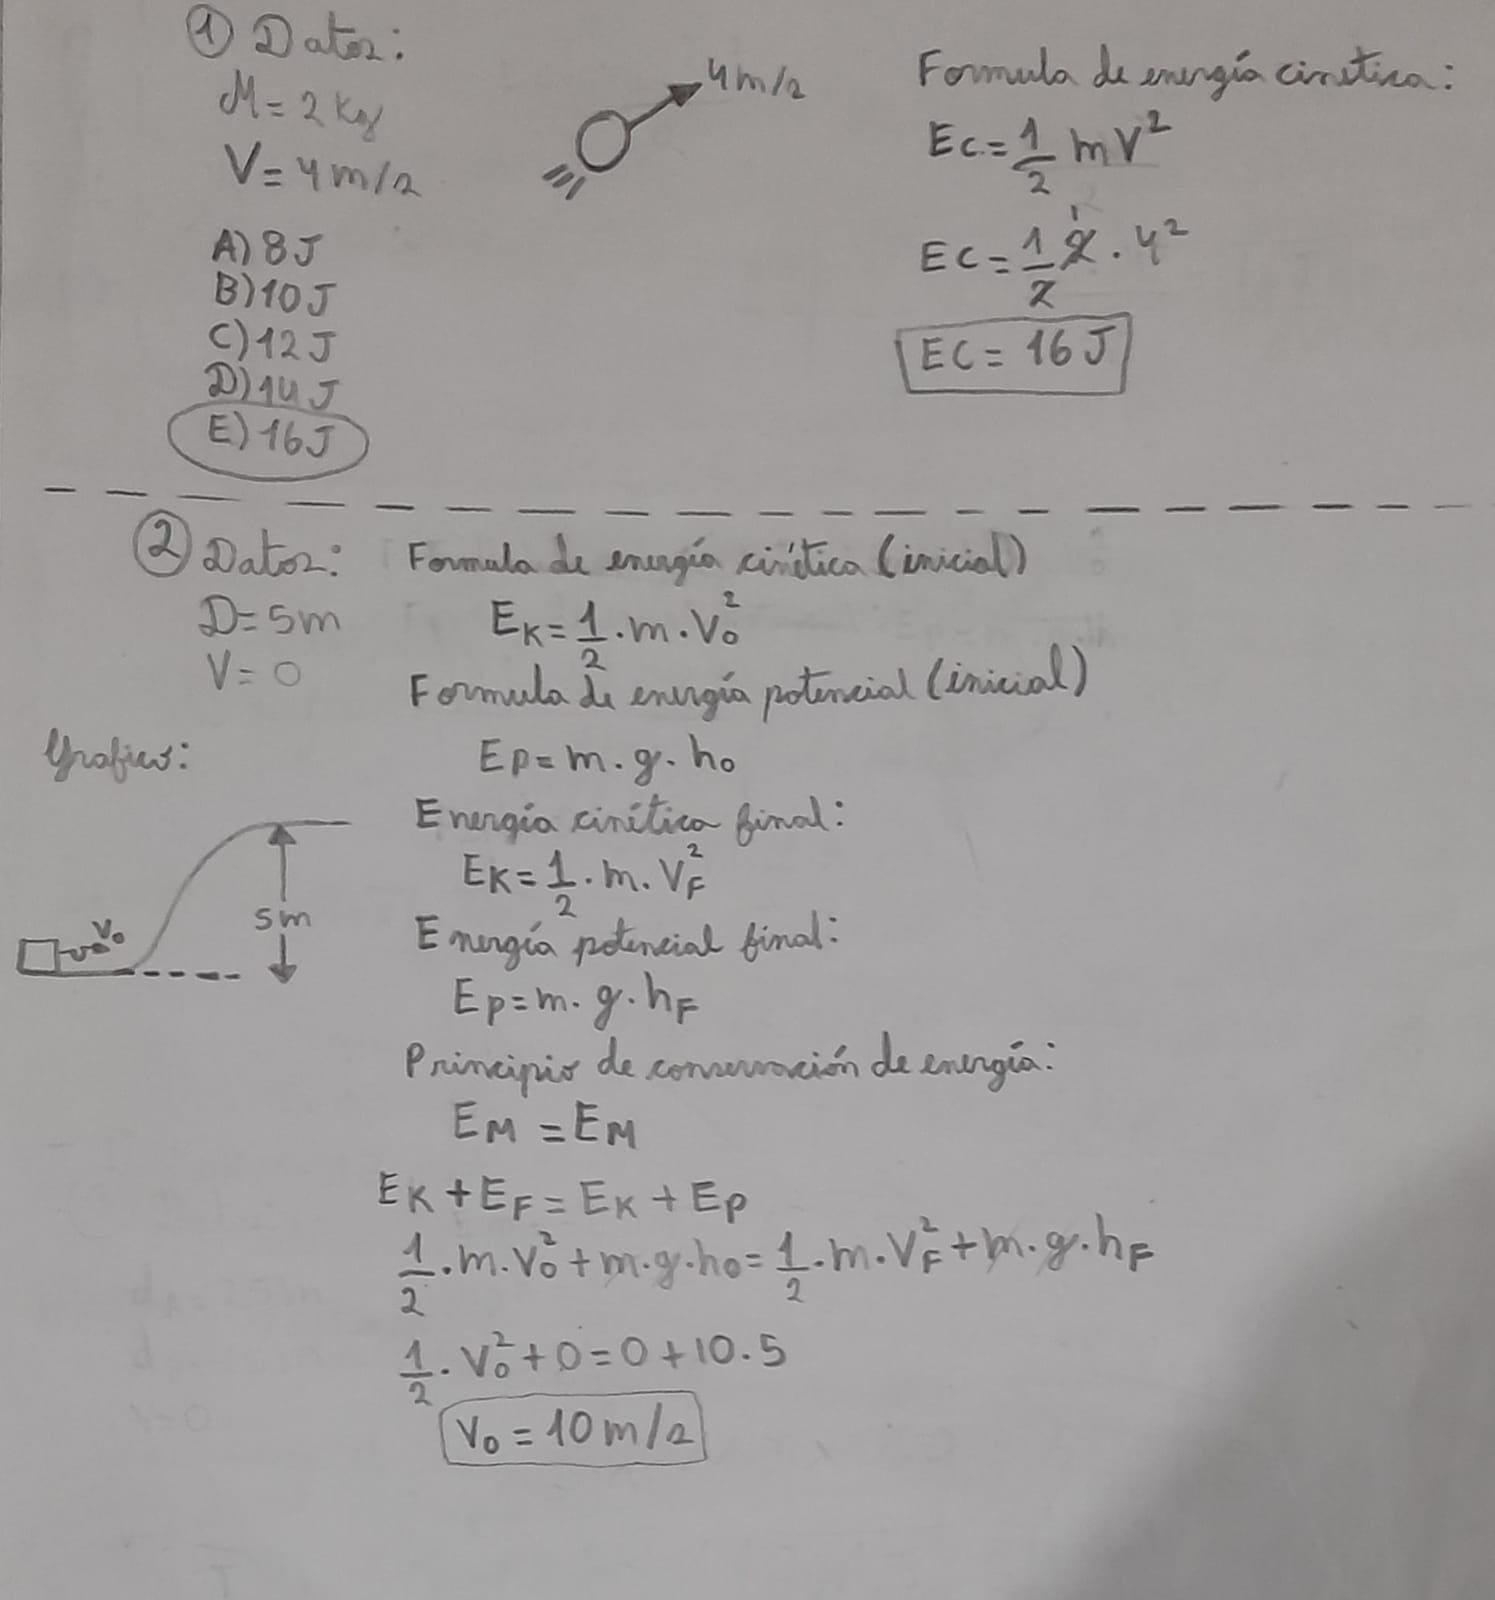 ① Datos:
M= 2 Kg
V= 4 m/s
A) 8 J
B) 10 J
C) 12 J
D) 14 J
E) 16 J
4 m/s
Formula de energía cinetica:
Ec = 1/2 mV²
EC = 1/2 2 . 4²
1
EC = 16 J
② Datos:
D= 5m
V= 0
Grafico:
V₀
5m
Formula de energía cinética (inicial)
EK = 1/2 . m . V₀²
Formula de energía potencial (inicial)
EP = m . g . h₀
Energía cinética final:
EK = 1/2 . m . VF²
Energía potencial final:
Ep = m . g . hF
Principio de conservación de energía:
EM = EM
EK + EF = EK + EP
1/2 . m . V₀² + m . g . h₀ = 1/2 . m . VF² + m . g . hF
1/2 . V₀² + 0 = 0 + 10 . 5
V₀ = 10 m/s